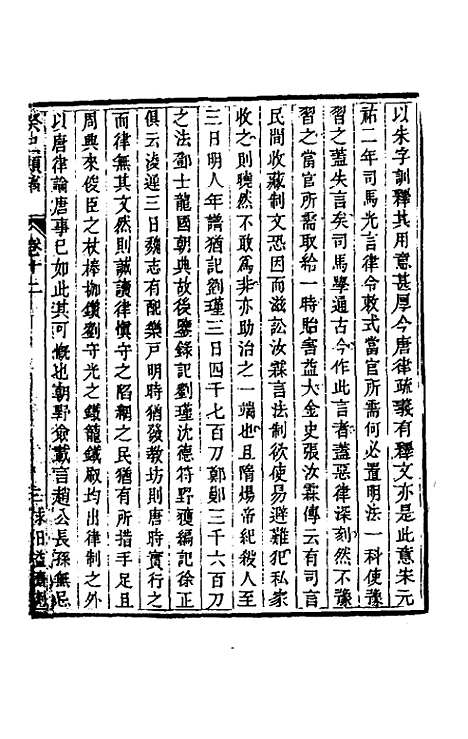 以朱字訓釋其用意甚厚今唐律疏議有釋文亦是此意宋元
祐二年司馬光言律令敕式當官所需何必置明法一科使豫
習之蓋失言矣司馬學通古今作此言者蓋惡律深刻然不豫
習之當官所需取給一時貽害益大金史張汝霖傳云有司言
民間收藏制文恐因而滋訟汝霖言法制欲使易避難犯私家
收之則曉然不敢為非亦助治之一端也且隋煬帝紀殺人至
三日明人年譜猶記劉瑾三日四千七百刀鄭鄤三千六百刀
之法鄧士龍國朝典故後鑒錄記劉瑾沈德符野獲編記徐正
俱云淩遲三日魏志有配樂戶明時猶發教坊則唐時實行之
而律無其文然則誠讀律慎守之陷網之民猶有所措手足且
周興來俊臣之杖棒枷鑕劉守光之鐵籠鐵刷均出律制之外
以唐律論唐事已如此其可慨也朝野僉載言趙公長孫無忌
癸巳類稾
卷十二
求日益齋